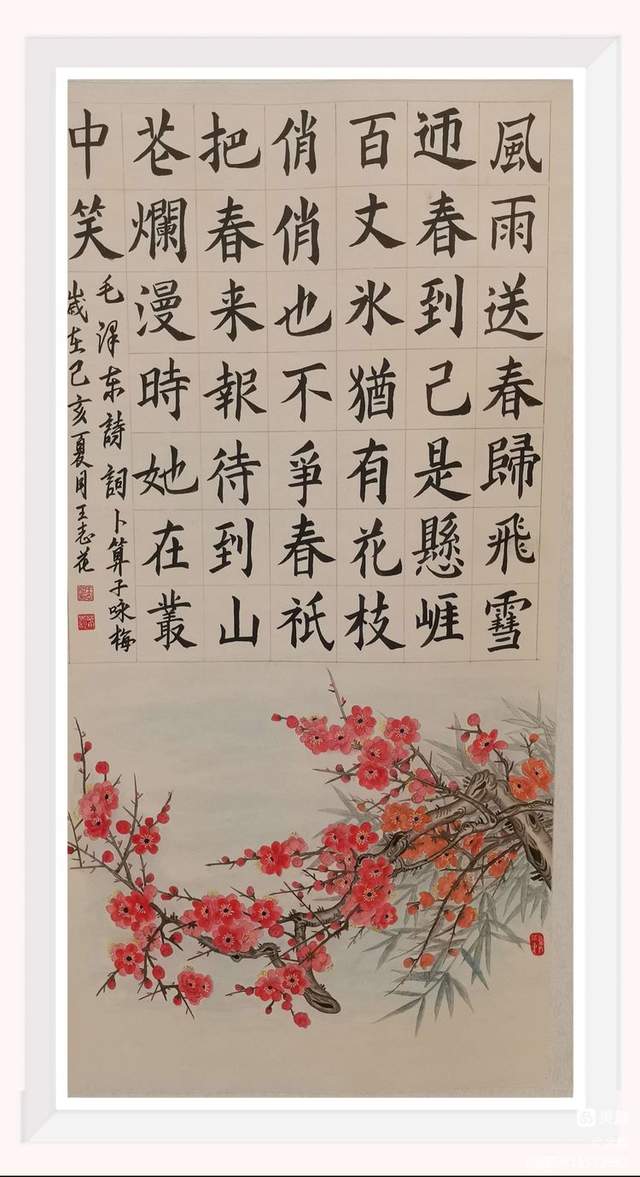 風雨送春歸飛䨮
迊春到己是懸崕
百丈氷猶有花枝
俏俏也不爭春祇
把春来報待到山
芲爛漫時她在叢
中笑
毛泽东詩詞卜算子咏梅
歲在己亥夏月王志花